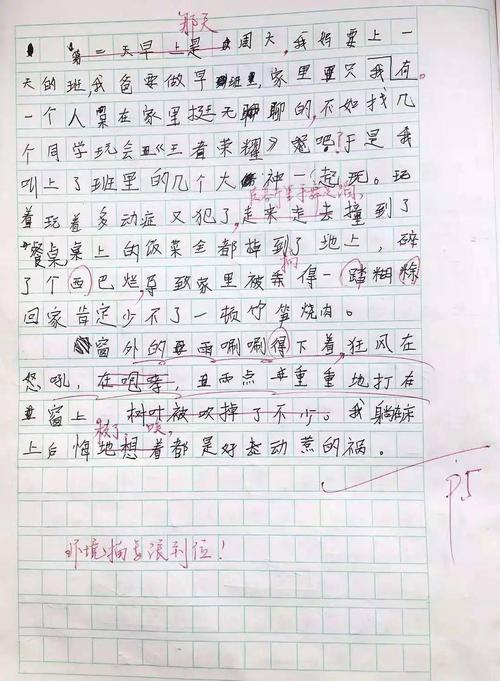 那天
第二天早上是周六,我妈要上一
天的班,我爸要做早班,家里只我有
一个人呆在家里挺无聊的,不如找几
个同学玩会《王者荣耀》吧,于是我
叫上了班里的几个大神一起玩。玩
着玩着多动症又犯了,走来走去撞到了
餐桌桌上的饭菜全都掉到了地上,碎
了个西巴烂,导致家里被弄得一踏糊
回家肯定少不了一顿竹笋烧肉。
窗外的雨唰唰得下着,狂风在
怒吼,在咆哮,雨点重重地打在
窗上 树叶被吹掉了不少。我躺在床
上后悔地想着都是好动惹的祸。
环境描写很到位!